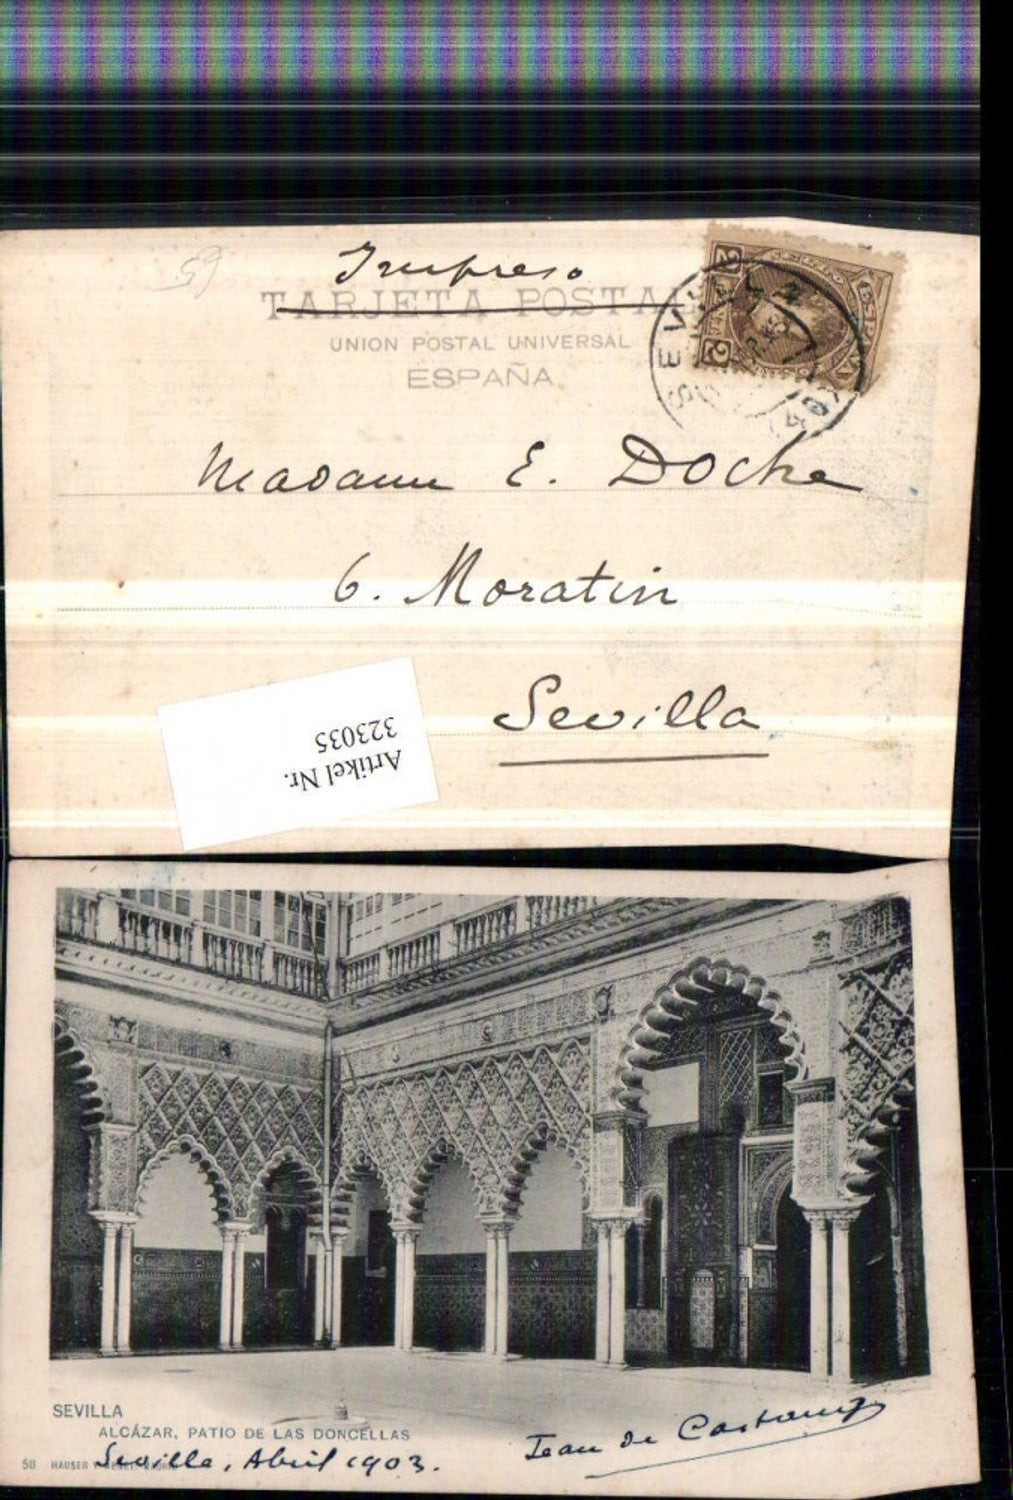 59
Impreso
TARJETA POSTAL
UNION POSTAL UNIVERSAL
ESPAÑA
Madame E. Doche
6. Moratin
Sevilla
Artikel Nr.
323035
SEVILLA
ALCÁZAR, PATIO DE LAS DONCELLAS
Sevilla, Abril 1903.
Jean de
58 HAUSER Y MENET. MADRID